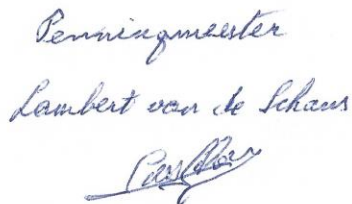 Penningmeester
Lambert van de Schans